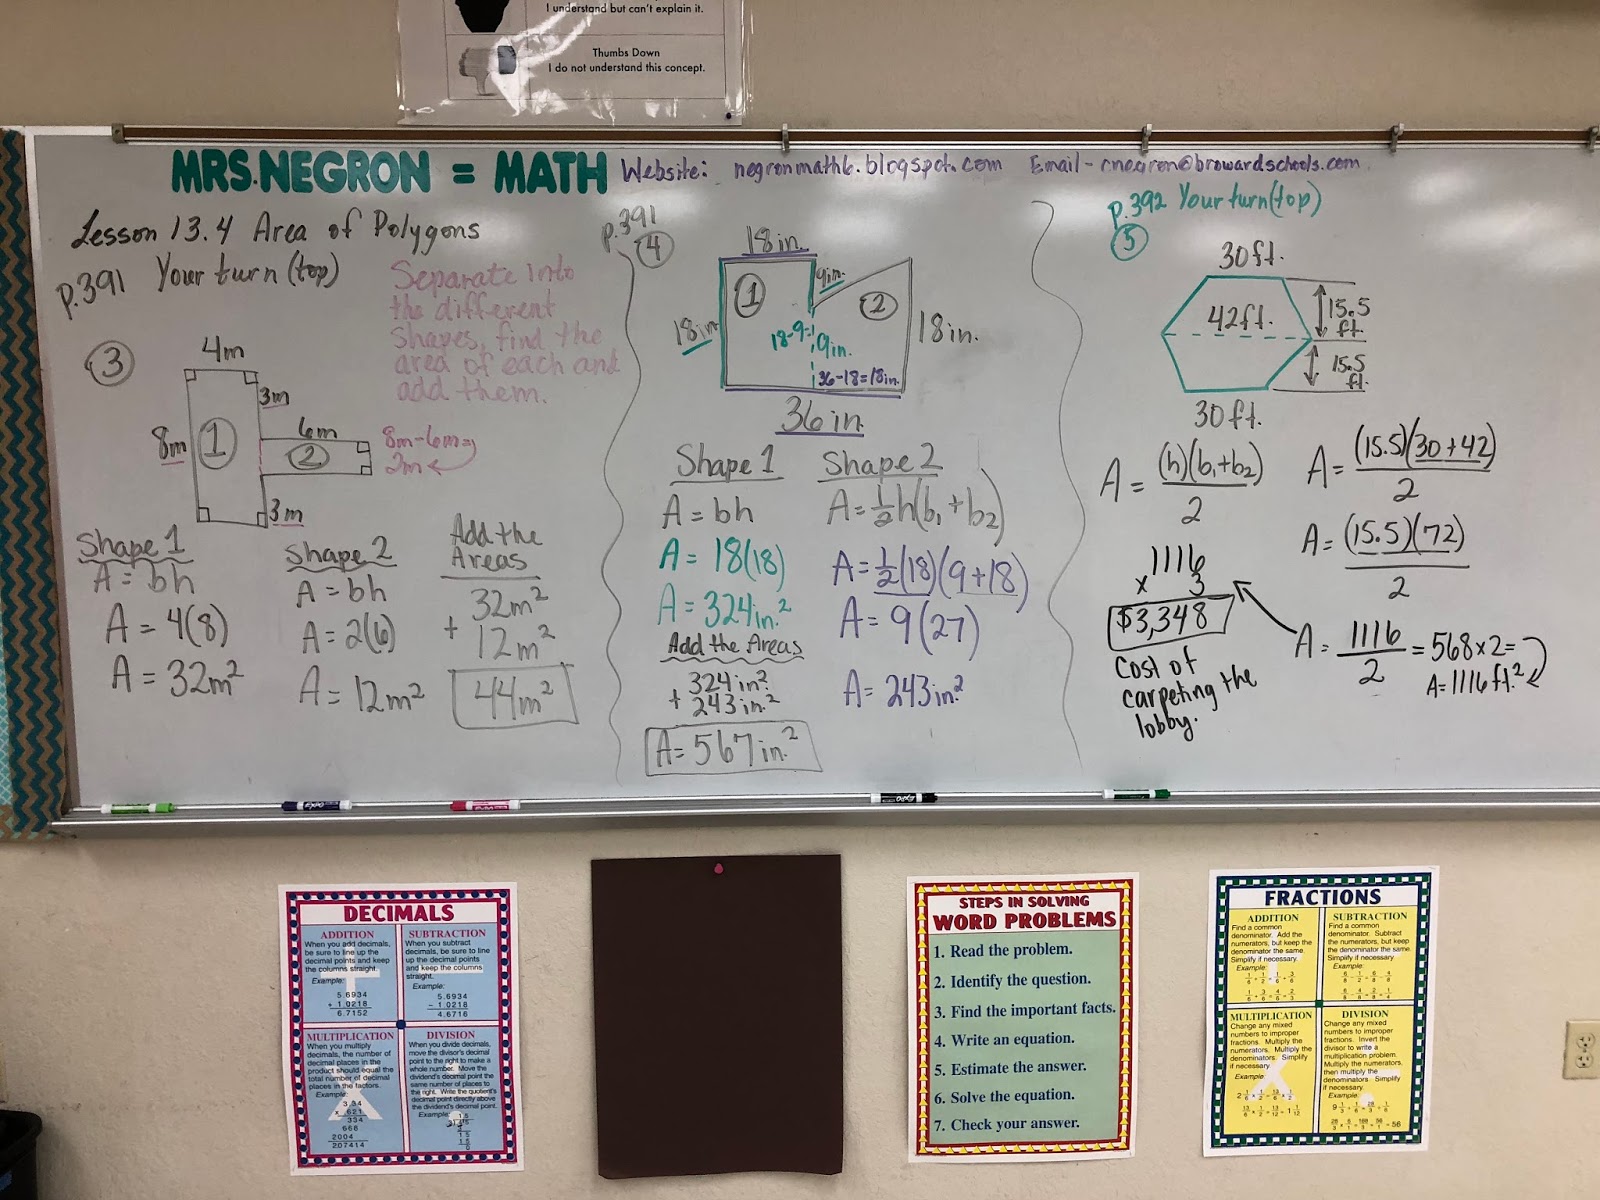 I understand but can't explain it.
Thumbs Down
I do not understand this concept.
MRS.NEGRON = MATH
Website: negronmath6.blogspot.com Email - cnegron@browardschools.com
Lesson 13.4 Area of Polygons
p.391 Your turn (top)
Separate into
the different
shapes, find the
area of each and
add them.
3
4m
3m
8m
1
6m
2
8m-6m=
2m
3m
Shape 1
A = bh
A = 4(8)
A = 32m²
Shape 2
A = bh
A = 2(6)
A = 12m²
Add the
Areas
32m²
+ 12m²
44m²
p.391
4
18in.
1
9in.
2
18in
18-9=
9in.
18in.
36-18=18in.
36in.
Shape 1
A = bh
A = 18(18)
A = 324in.²
Add the Areas
324in.²
+ 243in.²
A = 567in.²
Shape 2
A = ½h(b₁+b₂)
A = ½(18)(9+18)
A = 9(27)
A = 243in.²
p.392 Your turn (top)
5
30ft.
42ft.
15.5
ft.
15.5
ft.
30ft.
A = (h)(b₁+b₂)
2
A = (15.5)(30+42)
2
A = (15.5)(72)
2
A = 1116
2
=568x2=
A=1116ft.²
1116
x 3
$3,348
Cost of
carpeting the
lobby.
EXPO
DECIMALS
ADDITION
When you add decimals,
be sure to line up the
decimal points and keep
the columns straight.
Example:
5.6934
+ 1.0218
6.7152
SUBTRACTION
When you subtract
decimals, be sure to line
up the decimal points
and keep the columns
straight.
Example:
5.6934
- 1.0218
4.6716
MULTIPLICATION
When you multiply
decimals, the number of
decimal places in the
product should equal the
total number of decimal
places in the factors.
Example:
334
668
2004
207414
DIVISION
When you divide decimals,
move the divisor's decimal
point to the right to make a
whole number. Move the
dividend's decimal point the
same number of places to
the right. Write the quotient's
decimal point directly above
the dividend's decimal point.
Example:
STEPS IN SOLVING
WORD PROBLEMS
1. Read the problem.
2. Identify the question.
3. Find the important facts.
4. Write an equation.
5. Estimate the answer.
6. Solve the equation.
7. Check your answer.
FRACTIONS
ADDITION
Find a common
denominator. Add the
numerators, but keep the
denominator the same.
Simplify if necessary.
Example:
SUBTRACTION
Find a common
denominator. Subtract
the numerators, but keep
the denominator the same.
Simplify if necessary.
Example:
MULTIPLICATION
Change any mixed
numbers to improper
fractions. Multiply the
numerators. Multiply the
denominators. Simplify
if necessary.
Example:
DIVISION
Change any mixed
numbers to improper
fractions. Invert the
divisor to write a
multiplication problem.
Multiply the numerators,
then multiply the
denominators. Simplify
if necessary.
Example: